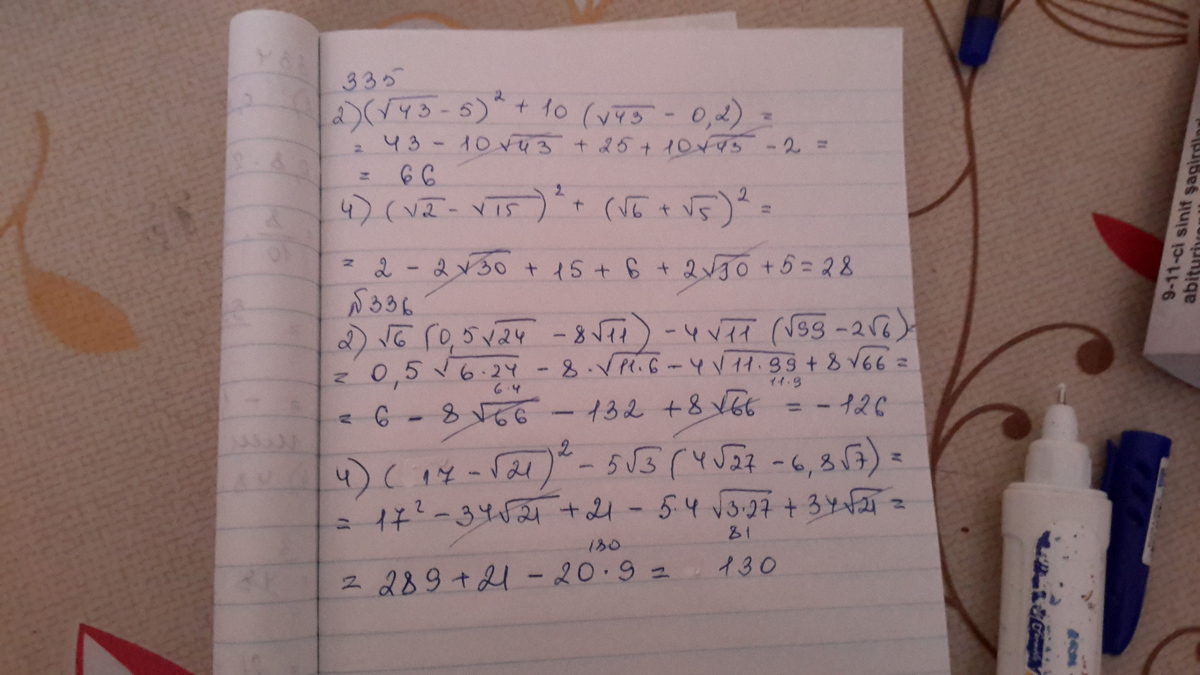 335
2) (√43 - 5)² + 10 (√43 - 0,2) =
= 43 - 10√43 + 25 + 10√43 - 2 =
= 66
4) (√2 - √15)² + (√6 + √5)² =
= 2 - 2√30 + 15 + 6 + 2√30 + 5 = 28
№336
2) √6 (0,5√24 - 8√11) - 4√11 (√99 - 2√6) =
= 0,5 √6·24 - 8·√11·6 - 4√11·99 + 8√66 =
6·4 11·9
= 6 - 8√66 - 132 + 8√66 = -126
4) (17 - √21)² - 5√3 (4√27 - 6,8√7) =
= 17² - 34√21 + 21 - 5·4 √3·27 + 34√21 =
81
180
= 289 + 21 - 20·9 = 130
9-11-ci sinif